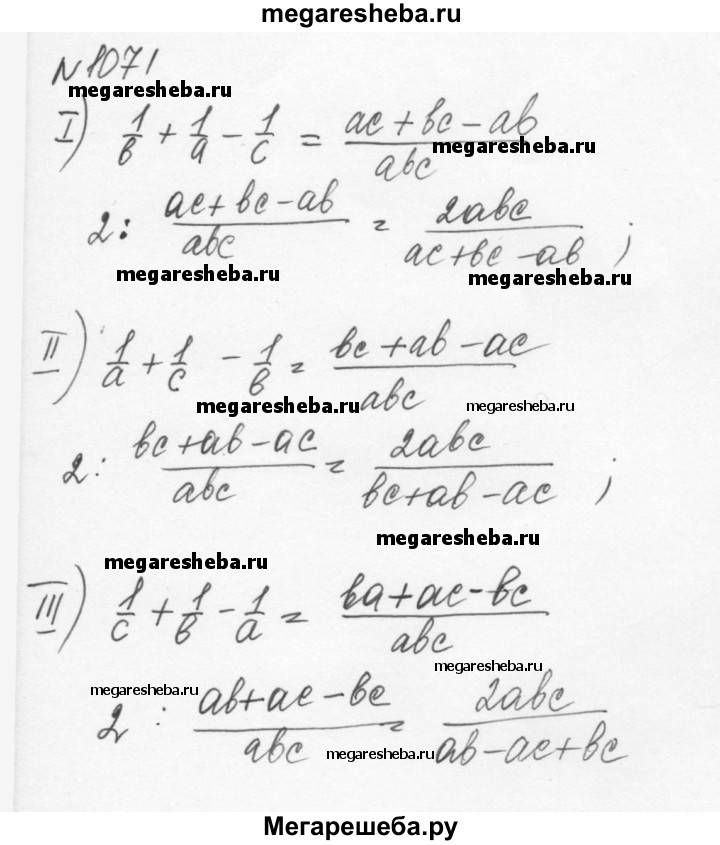 megaresheba.ru
N 1071
megaresheba.ru
I) 1/в + 1/a - 1/c = (ac + вc - ab)/abc
megaresheba.ru
2 : (ac + вc - ab)/abc = 2abc/(ac + вc - ab) ;
megaresheba.ru megaresheba.ru
II) 1/a + 1/c - 1/в = (вc + ab - ac)/abc
megaresheba.ru megaresheba.ru
2 : (вc + ab - ac)/abc = 2abc/(вc + ab - ac) ;
megaresheba.ru
megaresheba.ru
III) 1/c + 1/в - 1/a = (вa + ac - вc)/abc
megaresheba.ru
megaresheba.ru
2 : (ab + ac - вc)/abc = 2abc/(ab - ac + вc)
megaresheba.ru megaresheba.ru
Мегарешеба.ру